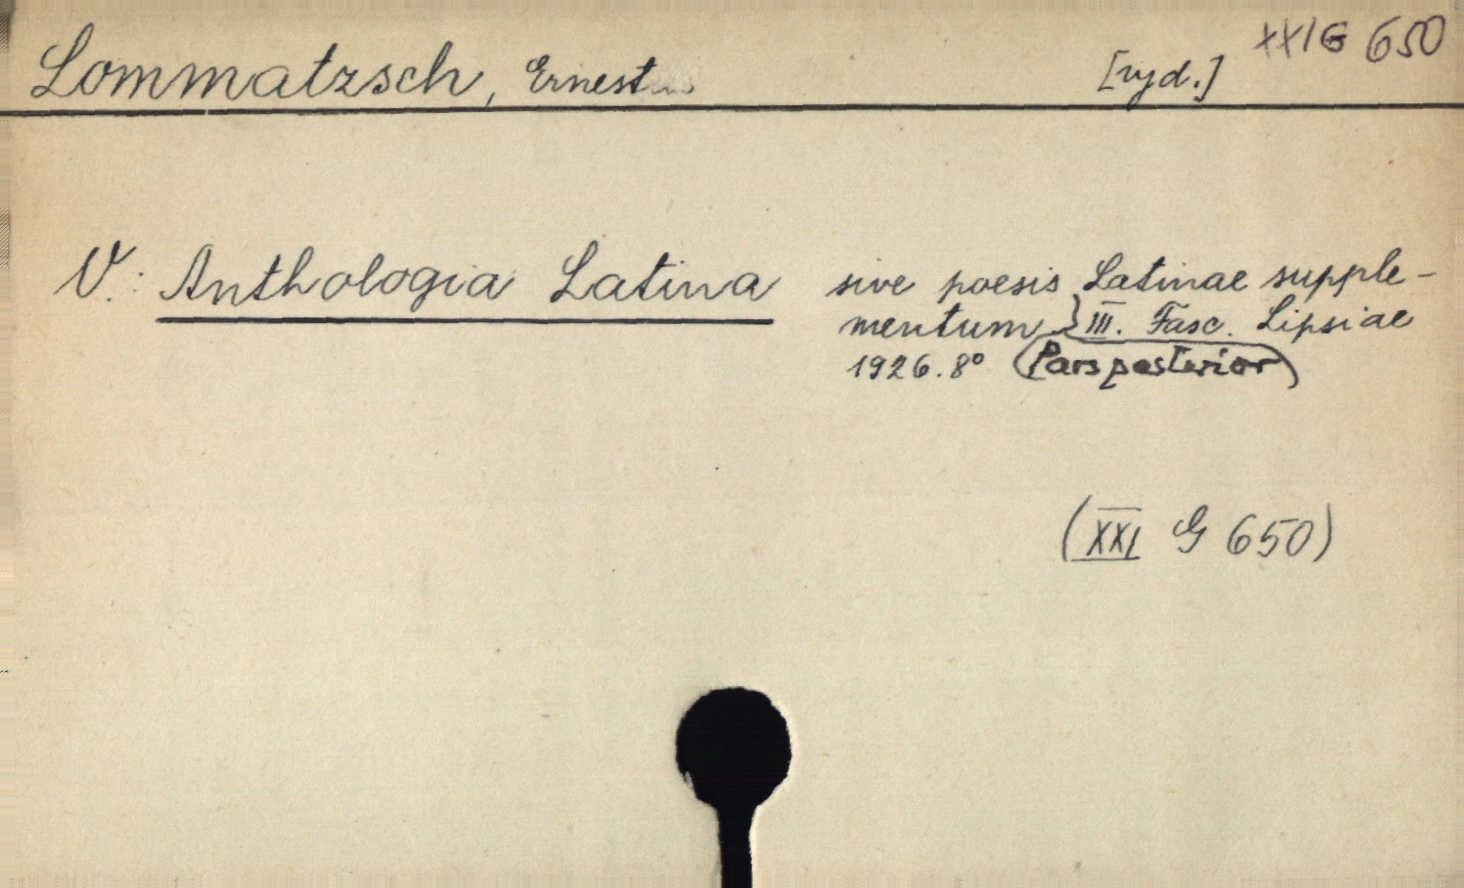 XXIG 650
Lommatzsch, Ernest [vyd.]
V.: Anthologia Latina sive poesis Latinae supple-
mentum III. Fasc. Lipsiae
1926. 8° (Pars posterior)
(XXI G 650)